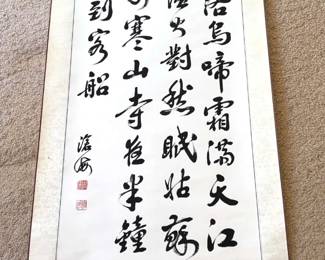 落烏啼霜滿天江
漁火對愁眠姑蘇
外寒山寺夜半鐘
到客船